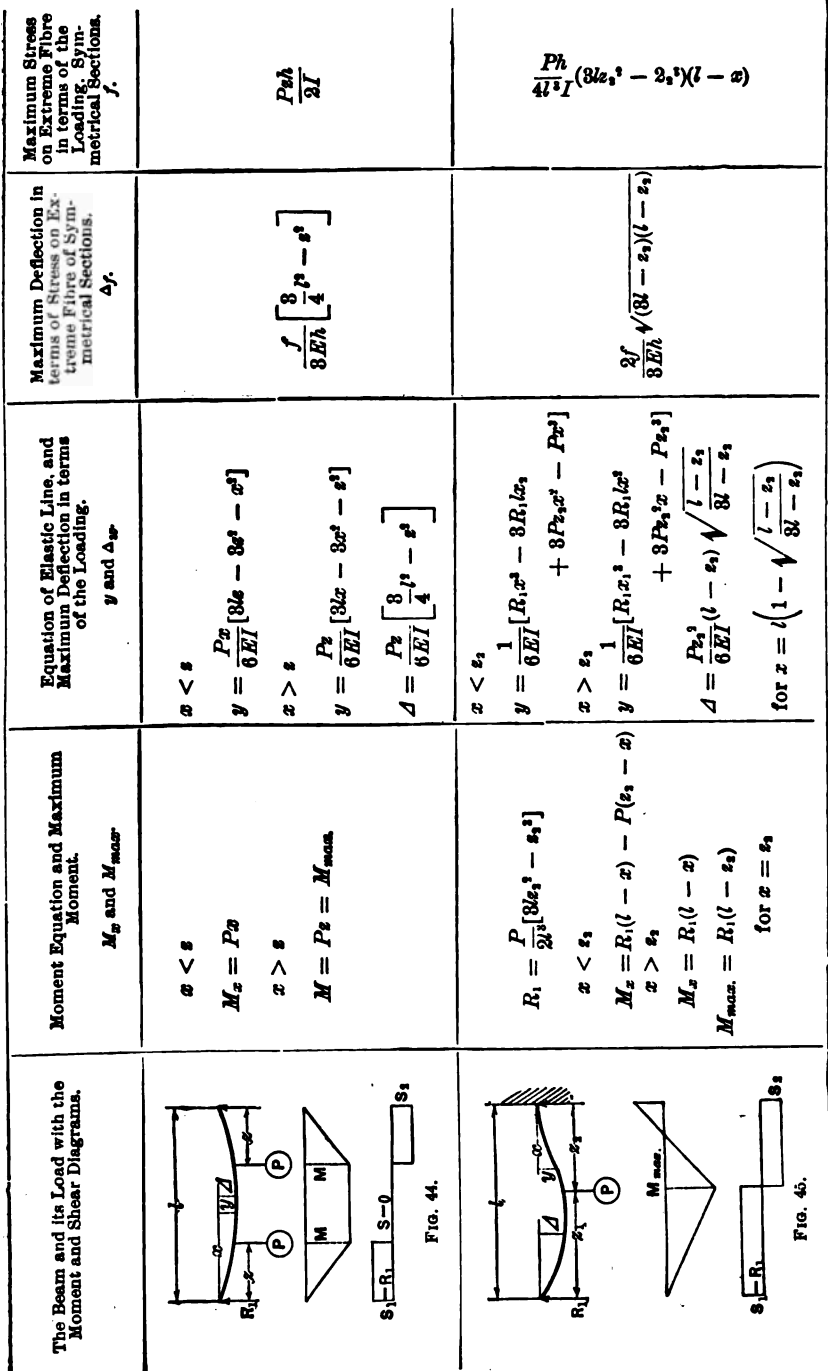 The Beam and its Load with the
Moment and Shear Diagrams.
Moment Equation and Maximum
Moment.
Mx and Mmax.
Equation of Elastic Line, and
Maximum Deflection in terms
of the Loading.
y and Δw.
Maximum Deflection in
terms of Stress on Ex-
treme Fibre of Sym-
metrical Sections.
Δf.
Maximum Stress
on Extreme Fibre
in terms of the
Loading. Sym-
metrical Sections.
f.
l
x
y
Δ
R₁
z
z
P
P
M
M
S₁=R₁
S=0
S₂
FIG. 44.
x < z
Mx = Px
x > z
M = Pz = Mmax.
x < z
y = Px/6EI [3lz − 3z² − x²]
x > z
y = Pz/6EI [3lx − 3x² − z²]
Δ = Pz/6EI [3/4 l² − z²]
f/3Eh [3/4 l² − z²]
Pzh/2I
l
x
y
Δ
R₁
z₁
z₂
P
M max.
S₁=R₁
S₂
FIG. 45.
R₁ = P/2l³ [3lz₂² − z₂³]
x < z₂
Mx = R₁(l − x) − P(z₂ − x)
x > z₂
Mx = R₁(l − x)
Mmax. = R₁(l − z₂)
for x = z₂
x < z₂
y = 1/6EI [R₁x³ − 3R₁lx₂
+ 3Pz₂x² − Px³]
x > z₂
y = 1/6EI [R₁x₁³ − 3R₁lx²
+ 3Pz₂²x − Pz₂³]
Δ = Pz₂²/6EI (l − z₂) √((l − z₂)/(3l − z₂))
for x = l(1 − √((l − z₂)/(3l − z₂)))
2f/3Eh √((3l − z₂)(l − z₂))
Ph/4l³I (3lz₂² − 2₂³)(l − x)